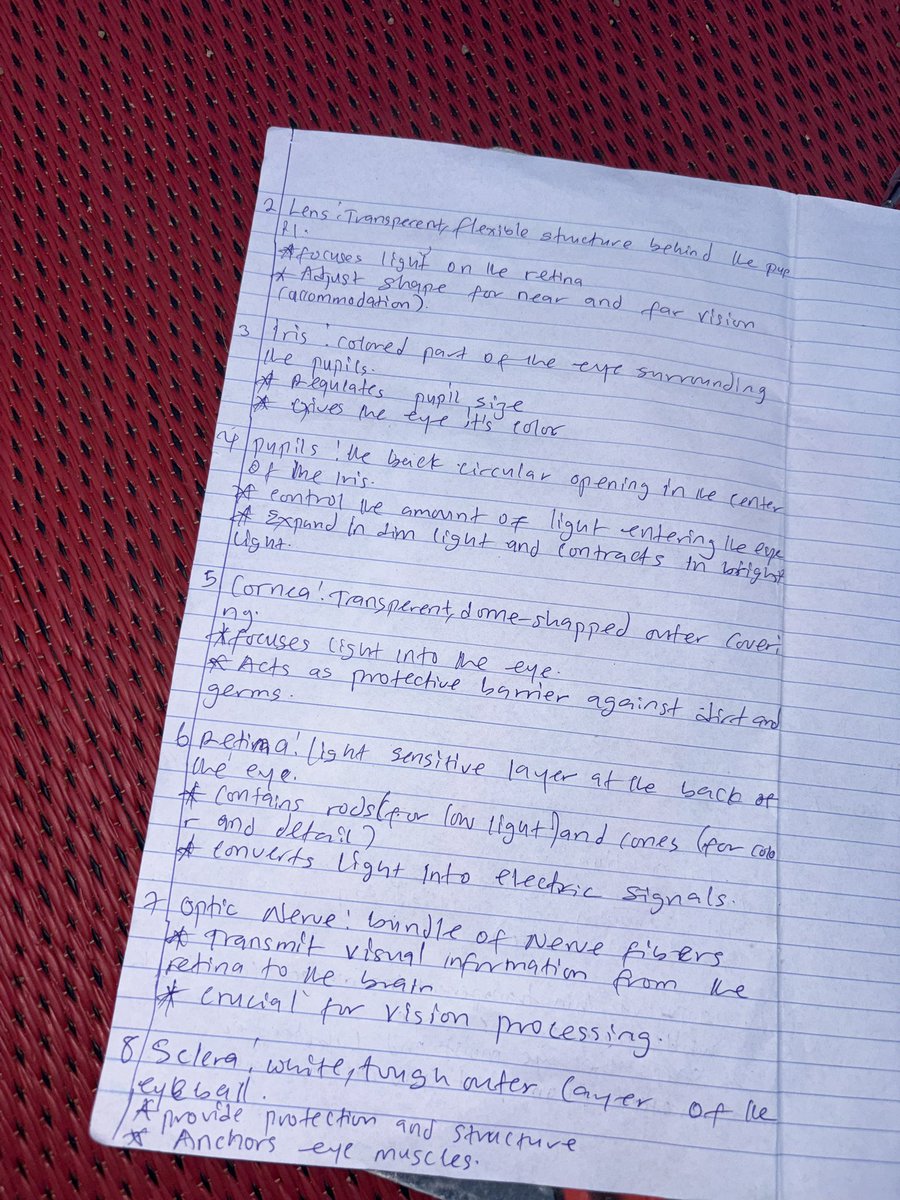 2 Lens: Transperent, flexible structure behind the pup
il.
* focuses light on the retina
* Adjust shape for near and far vision
(accommodation).
3 Iris: colored part of the eye surrounding
the pupils.
* Regulates pupil size
* Gives the eye it's color
4 pupils: the back circular opening in the center
of the Iris.
* control the amount of light entering the eye
* Expand in dim light and contracts in bright
light.
5 Cornea: Transperent, dome-shapped outer coveri
ng.
* focuses light into the eye.
* Acts as protective barrier against dirt and
germs.
6 Retina: light sensitive layer at the back of
the eye.
* contains rods (for low light) and cones (for colo
r and detail)
* converts light into electric signals.
7 Optic Nerve: bundle of Nerve fibers
* Transmit visual information from the
retina to the brain
* crucial for vision processing.
8 Sclera: white, tough outer layer of the
eyeball.
* provide protection and structure
* Anchors eye muscles.